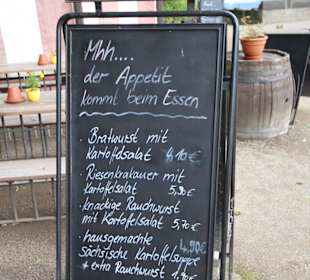 Mhh....
der Appetit
kommt beim Essen
· Bratwurst mit
Kartoffelsalat 4,10 €
· Riesenkrakauer mit
Kartoffelsalat 5,90 €
· knackige Rauchwurst
mit Kartoffelsalat 5,70 €
· hausgemachte 4,90 €
sächsische Kartoffelsuppe
* extra Rauchwurst